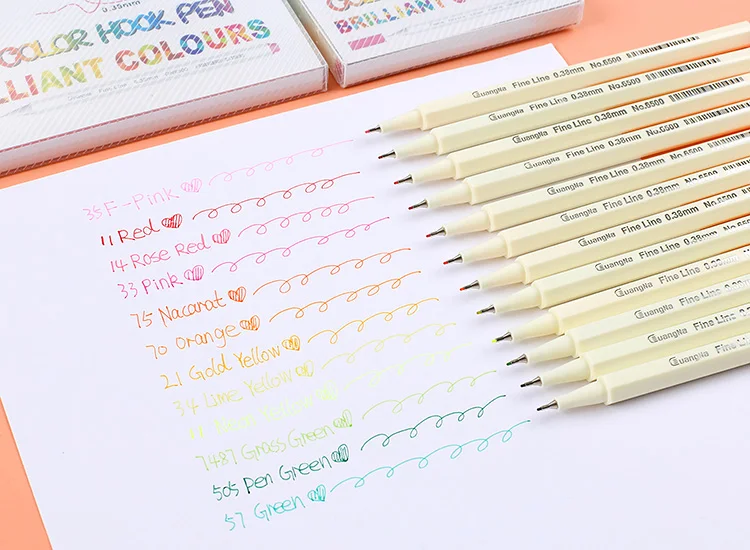 0.38mm
COLOR HOOK PEN
BRILLIANT COLOURS
LLIANT COLOURS
35 F-Pink
11 Red
14 Rose Red
33 Pink
75 Nacarat
70 orange
21 Gold Yellow
34 Lime Yellow
7487 Grass Green
505 Pen Green
57 Green
Guangna Fine Line 0.38mm No.6500
Guangna Fine Line 0.38mm No.6500
Guangna Fine Line 0.38mm No.6500
Guangna Fine Line 0.38mm No.6500
Guangna Fine Line 0.38mm No.6500
Guangna Fine Line 0.38mm No.6500
Guangna Fine Line 0.38mm No.6500
Guangna Fine Line 0.38mm
Guangna Fine Line 0.38mm
Guangna Fine Line
Guangna Fine Line